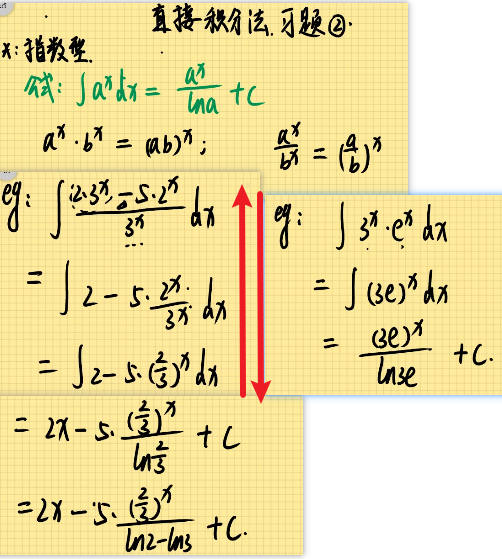 直接积分法.习题②.
x:指数型.
公式: ∫aˣdx = aˣ/lna + C
aˣ·bˣ = (ab)ˣ; aˣ/bˣ = (a/b)ˣ
eg: ∫ (2·3ˣ - 5·2ˣ)/3ˣ dx
= ∫ 2 - 5·2ˣ/3ˣ dx
= ∫ 2 - 5·(2/3)ˣ dx
= 2x - 5·(2/3)ˣ/ln(2/3) + C
= 2x - 5·(2/3)ˣ/(ln2-ln3) + C.
eg: ∫ 3ˣ·eˣ dx
= ∫ (3e)ˣ dx
= (3e)ˣ/ln3e + C.